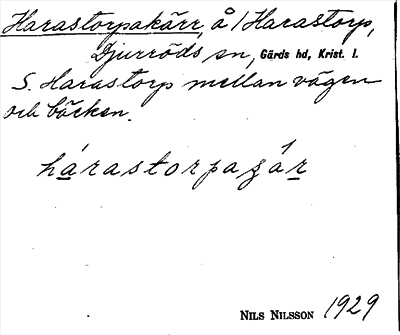 Harastorpakärr, å / Harastorp,
Djurröds sn, Gärds hd, Krist. l.
S. Harastorp mellan vägen
och bäcken.
hárastorpaʒár
NILS NILSSON 1929